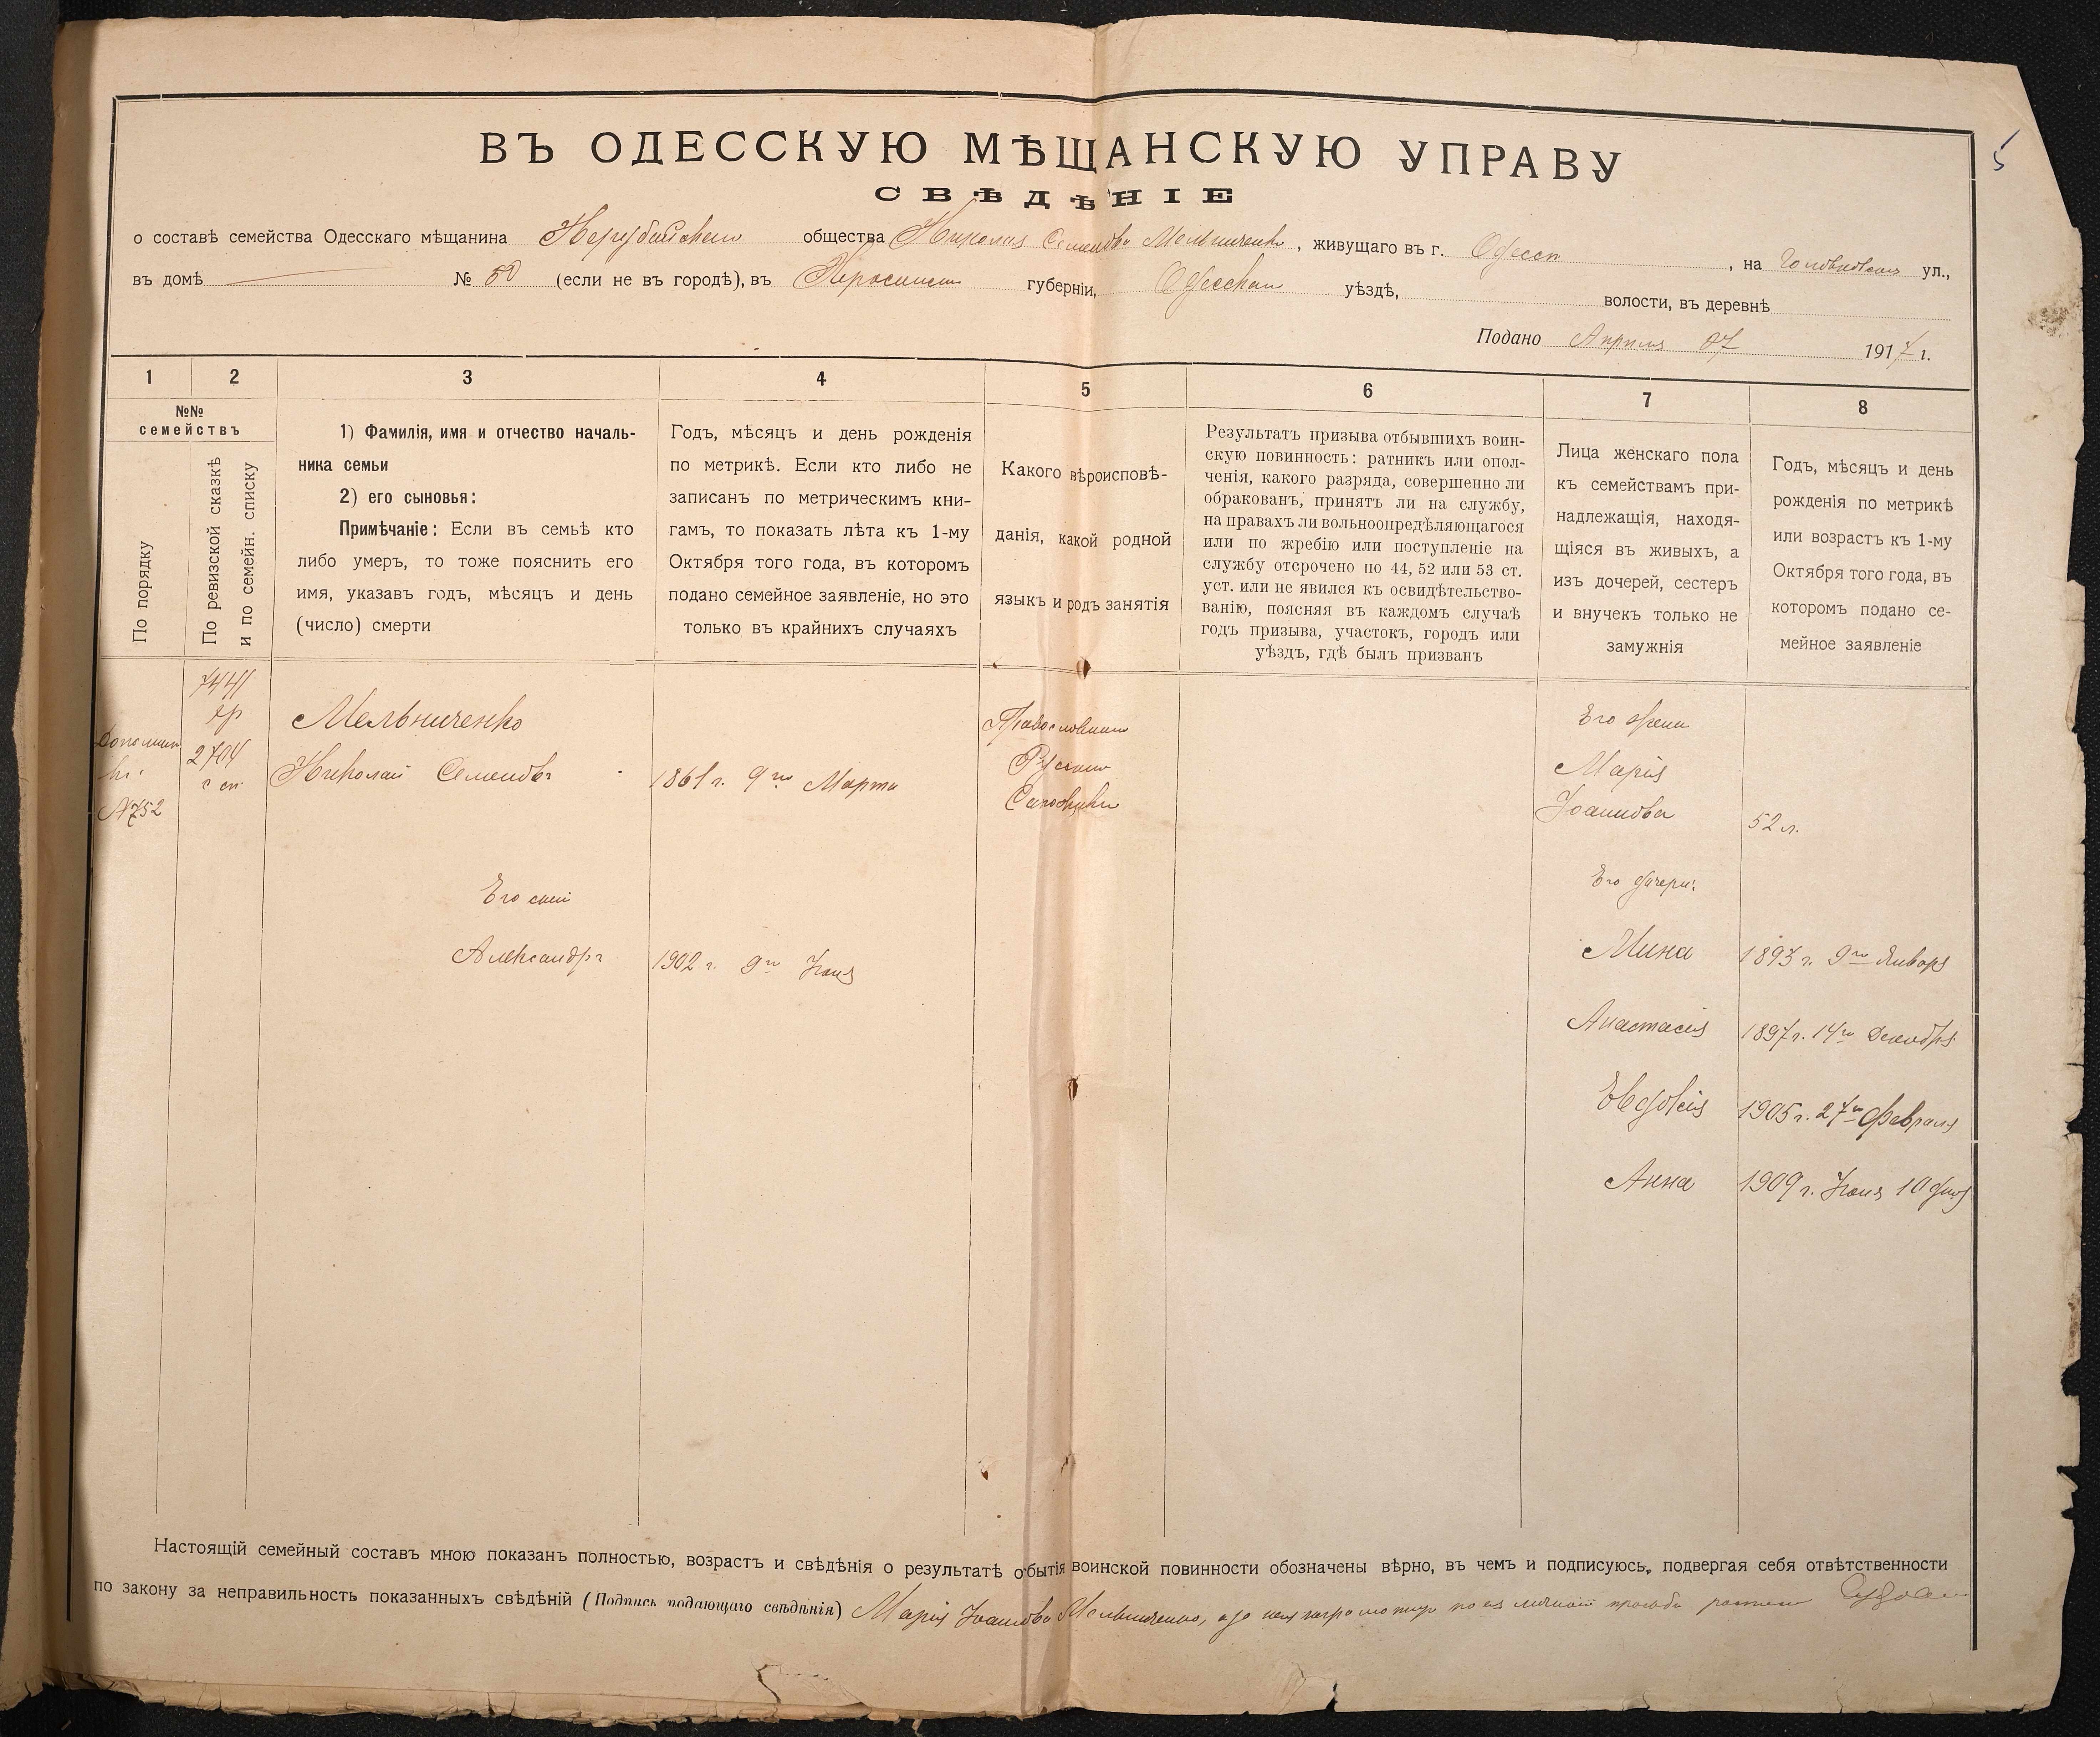 5
ВЪ ОДЕССКУЮ МѢЩАНСКУЮ УПРАВУ
СВѢДѢНІЕ
о составѣ семейства Одесскаго мѣщанина Нерубайскаго общества Николая Семенова Мельниченко, живущаго въ г. Одессѣ, на Головковской ул.,
въ домѣ № 50 (если не въ городѣ), въ Херсонской губерніи, Одесскаго уѣздѣ, волости, въ деревнѣ
Подано Апрѣля 07 1917 г.
1 2 3 4 5 6 7 8
№№
семействъ
По порядку
По ревизской сказкѣ
и по семейн. списку
1) Фамилія, имя и отчество началь-
ника семьи
2) его сыновья:
Примѣчаніе: Если въ семьѣ кто
либо умеръ, то тоже пояснить его
имя, указавъ годъ, мѣсяцъ и день
(число) смерти
Годъ, мѣсяцъ и день рожденія
по метрикѣ. Если кто либо не
записанъ по метрическимъ кни-
гамъ, то показать лѣта къ 1-му
Октября того года, въ которомъ
подано семейное заявленіе, но это
только въ крайнихъ случаяхъ
Какого вѣроисповѣ-
данія, какой родной
языкъ и родъ занятія
Результатъ призыва отбывшихъ воин-
скую повинность: ратникъ или опол-
ченія, какого разряда, совершенно ли
обракованъ, принятъ ли на службу,
на правахъ ли вольноопредѣляющагося
или по жребію или поступленіе на
службу отсрочено по 44, 52 или 53 ст.
уст. или не явился къ освидѣтельство-
ванію, поясняя въ каждомъ случаѣ
годъ призыва, участокъ, городъ или
уѣздъ, гдѣ былъ призванъ
Лица женскаго пола
къ семействамъ при-
надлежащія, находя-
щіяся въ живыхъ, а
изъ дочерей, сестеръ
и внучекъ только не
замужнія
Годъ, мѣсяцъ и день
рожденія по метрикѣ
или возрастъ къ 1-му
Октября того года, въ
которомъ подано се-
мейное заявленіе
№752
2704
Мельниченко
Николай Семеновъ
1861 г. 9го Марта
Православнаго
Русскаго
Сапожникъ
Его жена
Марія
Іоаннова
52 л.
Его сынъ
Александръ
1902 г. 9го Іюня
Его дочери:
Минна 1893 г. 9го Января
Анастасія 1897 г. 14го Декабря
Евдокія 1905 г. 27го Февраля
Анна 1909 г. Іюня 10 дня
Настоящій семейный составъ мною показанъ полностью, возрастъ и свѣдѣнія о результатѣ отбытія воинской повинности обозначены вѣрно, въ чемъ и подписуюсь, подвергая себя отвѣтственности
по закону за неправильность показанныхъ свѣдѣній (Подпись подающаго свѣдѣнія) Марія Іоаннова Мельниченко, а за нея неграмотную по ея личной просьбѣ